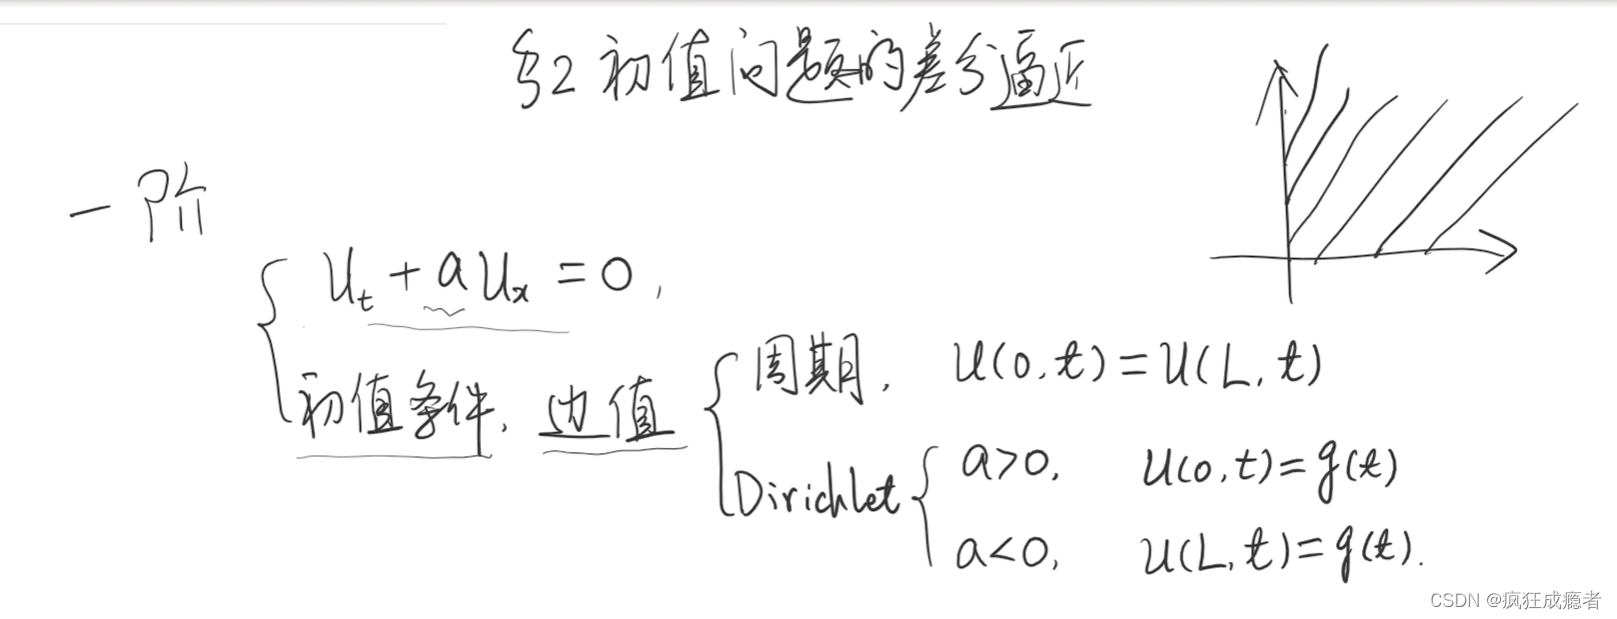 §2 初值问题的差分逼近
一阶
u_t + a u_x = 0,
初值条件, 边值
周期, u(0,t)=u(L,t)
Dirichlet
a>0, u(0,t)=g(t)
a<0, u(L,t)=g(t).
CSDN @疯狂成瘾者